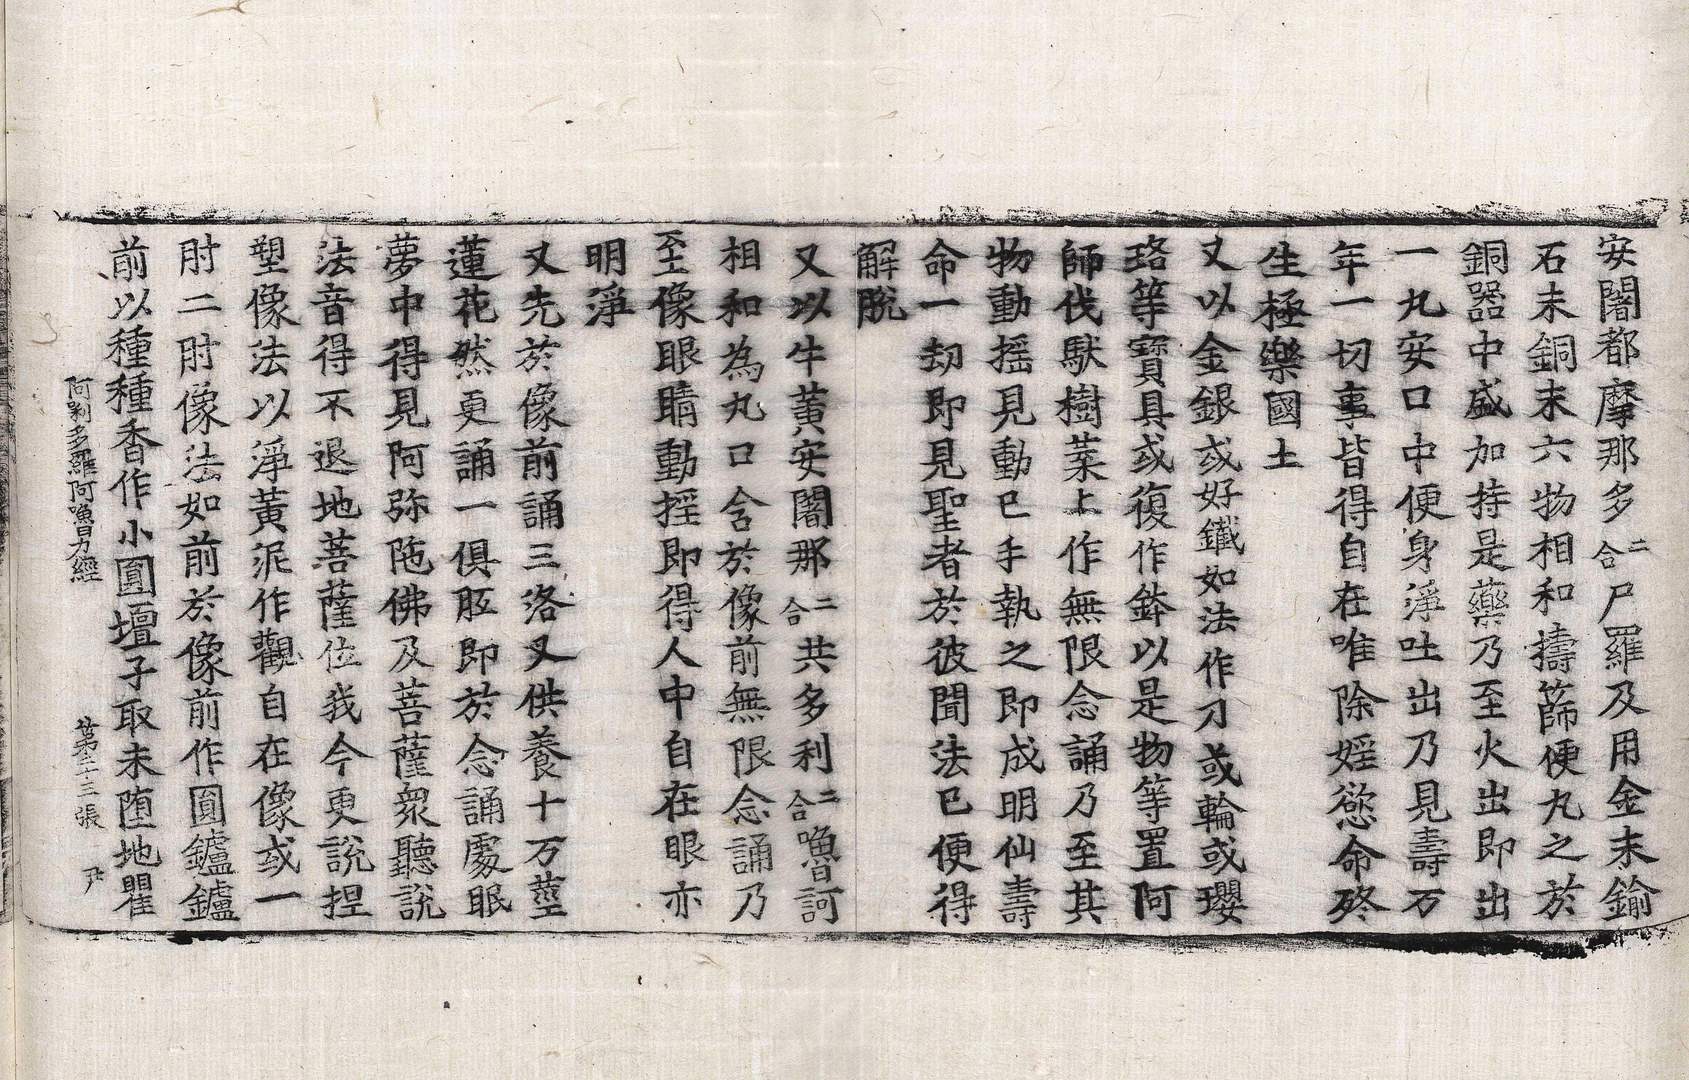 安闍都摩那多二合尸羅及用金末鍮
石末銅末六物相和擣篩便丸之於
銅器中盛加持是藥乃至火出即出
一丸安口中便身淨吐出乃見壽万
年一切事皆得自在唯除婬慾命終
生極樂國土
又以金銀或好鐵如法作刀或輪或瓔
珞等寶具或復作鉢以是物等置阿
師伐馱樹葉上作無限念誦乃至其
物動摇見動已手執之即成明仙壽
命一劫即見聖者於彼聞法已便得
解脫
又以牛黃安闍那二合共多利二合嚕訶
相和為丸口含於像前無限念誦乃
至像眼睛動摇即得人中自在眼亦
明淨
又先於像前誦三洛叉供養十万莖
蓮花然更誦一俱胝即於念誦處眠
夢中得見阿弥陁佛及菩薩衆聽說
法音得不退地菩薩位我今更說捏
塑像法以淨黃泥作觀自在像或一
肘二肘像法如前於像前作圓鑪鑪
前以種種香作小圓壇子取未墮地瞿
阿唎多羅阿嚕力經　第二十三張　尹